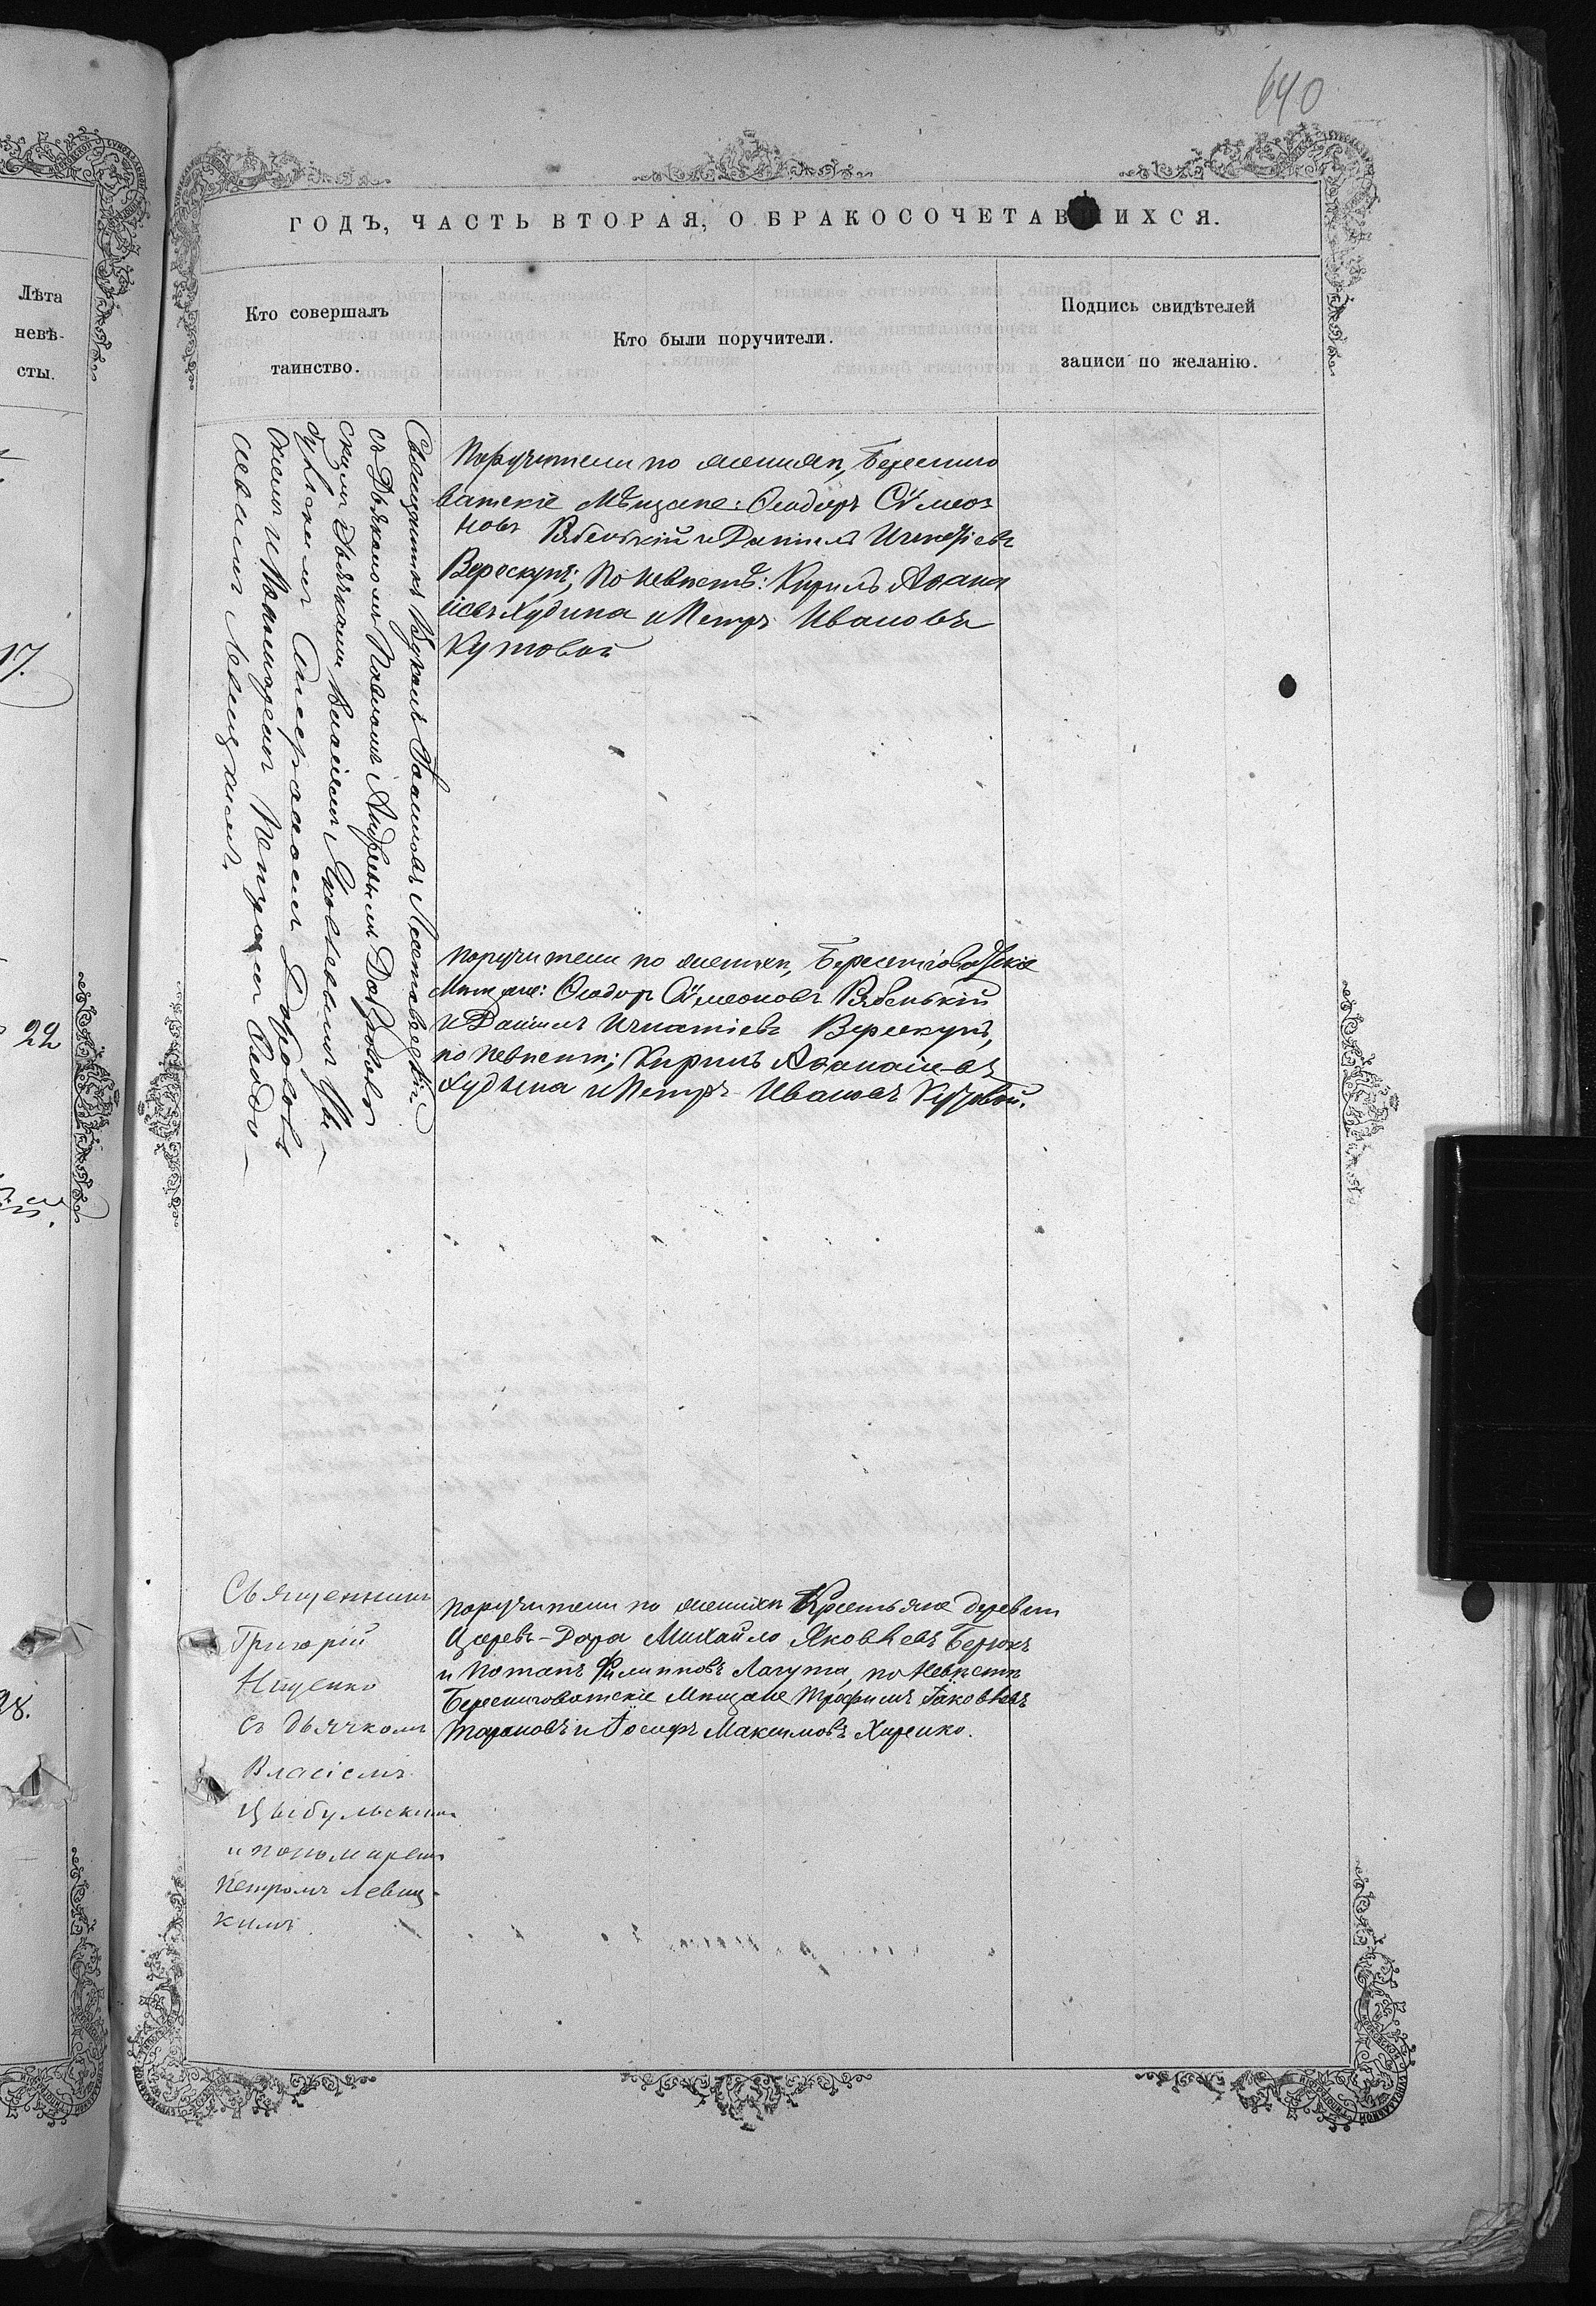 640
ГОДЪ, ЧАСТЬ ВТОРАЯ, О БРАКОСОЧЕТАВШИХСЯ.
Лѣта
невѣ-
сты.
17.
22
28.
Кто совершалъ
таинство.
Кто были поручители.
Подпись свидѣтелей
записи по желанію.
Священникъ Іоанновъ
съ Дьякономъ Павломъ Андреевымъ Добровол
скимъ Дьячкомъ Власіемъ Яковлевымъ Цы-
бульскимъ
и Пономаремъ Петромъ Ѳеодо-
сіевымъ Левицкимъ.
Поручители по женихѣ, Берестно
ватскіе Мѣщане: Ѳеодоръ Сѵмео-
новъ Рябенькій и Даніилъ Игнатіевъ
Верескунъ; По невѣстѣ: Кирилъ Аѳана
сіевъ Худина и Петръ Ивановъ
Кутовой
Поручители по женихѣ, Берестноватскіе
Мѣщане: Ѳеодоръ Сѵмеоновъ Рябенькій
и Даніилъ Игнатіевъ Верескунъ,
по невѣстѣ; Кирилъ Аѳанасіевъ
Худына и Петръ Ивановъ Кутовой.
Священникъ
Григорій
Ищенко
съ дьячкомъ
Власіемъ
Цыбульскимъ
и пономаремъ
Петромъ Левиц-
кимъ
Поручители по женихѣ Крестьяне деревни
Царевъ-Дара Михайло Яковлевъ Берюкъ
и Потапъ Филипповъ Лагута, по Невѣстѣ
Берестноватскіе Мѣщане Трофимъ Іаковлевъ
Тарановъ и Іосифъ Максимовъ Харенко.